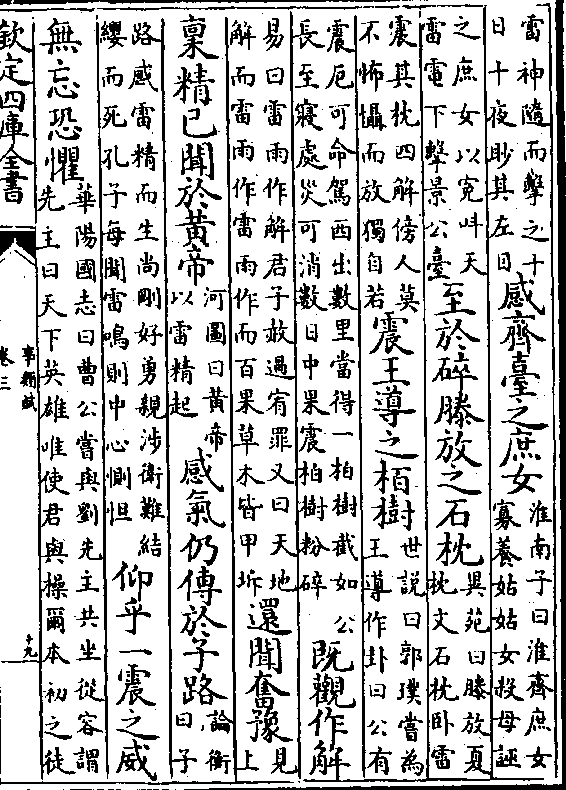 雷神隨而擊之十
日十夜眇其左目
感齊臺之庶女
淮南子曰淮齊庶女
寡養姑姑女殺母誣
之庶女以寃呌天
雷電下擊景公臺
至於碎滕放之石枕
異苑曰滕放夏
枕文石枕卧雷
震其枕四解傍人莫
不怖懾而放獨自若
震王導之栢樹
世說曰郭璞嘗為
王導作卦曰公有
震厄可命駕西出數里當得一柏樹截如公
長至寢處災可消數日中果震柏樹粉碎
既觀作解
易曰雷雨作解君子赦過宥罪又曰天地
解而雷雨作雷雨作而百果草木皆甲坼
還聞奮豫
見
上
稟精已聞於黄帝
河圖曰黄帝
以雷精起
感氣仍傳於子路
論衡
曰子
路感雷精而生尚剛好勇親涉衛難結
纓而死孔子每聞雷鳴則中心惻怛
仰乎一震之威
無忘恐懼
華陽國志曰曹公嘗與劉先主共坐從容謂
先主曰天下英雄唯使君與操爾本初之徒
欽定四庫全書
事類賦
卷三
十九